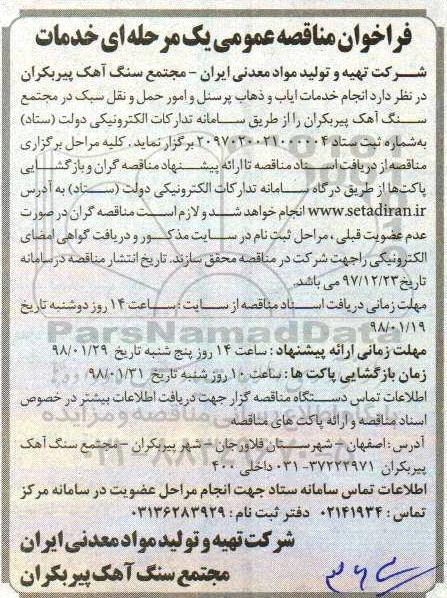 فراخوان مناقصه عمومی یک مرحله ای خدمات
شرکت تهیه و تولید مواد معدنی ایران - مجتمع سنگ آهک پیربکران
در نظر دارد انجام خدمات ایاب و ذهاب پرسنل و امور حمل و نقل سبک در مجتمع
سنگ آهک پیربکران را از طریق سامانه تدارکات الکترونیکی دولت (ستاد)
به شماره ثبت ستاد ۲۰۹۷۰۲۰۰۲۱۰۰۰۰۰۴ برگزار نماید. کلیه مراحل برگزاری
مناقصه از دریافت اسناد مناقصه تا ارائه پیشنهاد مناقصه گران و بازگشایی
پاکت‌ها از طریق درگاه سامانه تدارکات الکترونیکی دولت (ستاد) به آدرس
www.setadiran.ir انجام خواهد شد و لازم است مناقصه گران در صورت
عدم عضویت قبلی، مراحل ثبت نام در سایت مذکور و دریافت گواهی امضای
الکترونیکی را جهت شرکت در مناقصه محقق سازند. تاریخ انتشار مناقصه در سامانه
تاریخ ۹۷/۱۲/۲۳ می باشد.
مهلت زمانی دریافت اسناد مناقصه از سایت: ساعت ۱۴ روز دوشنبه تاریخ
۹۸/۰۱/۱۹
مهلت زمانی ارائه پیشنهاد: ساعت ۱۴ روز پنج شنبه تاریخ ۹۸/۰۱/۲۹
زمان بازگشایی پاکت ها: ساعت ۱۰ روز شنبه تاریخ ۹۸/۰۱/۳۱
اطلاعات تماس دستگاه مناقصه گزار جهت دریافت اطلاعات بیشتر در خصوص
اسناد مناقصه و ارائه پاکت های مناقصه
آدرس: اصفهان - شهرستان فلاورجان - شهر پیربکران - مجتمع سنگ آهک
پیربکران ۳۷۲۲۲۹۷۱-۰۳۱ داخلی ۴۰۰
اطلاعات تماس سامانه ستاد جهت انجام مراحل عضویت در سامانه مرکز
تماس: ۰۲۱۴۱۹۳۴ دفتر ثبت نام: ۰۳۱۳۶۲۸۳۹۲۹
شرکت تهیه و تولید مواد معدنی ایران
مجتمع سنگ آهک پیربکران
ParsNamadData